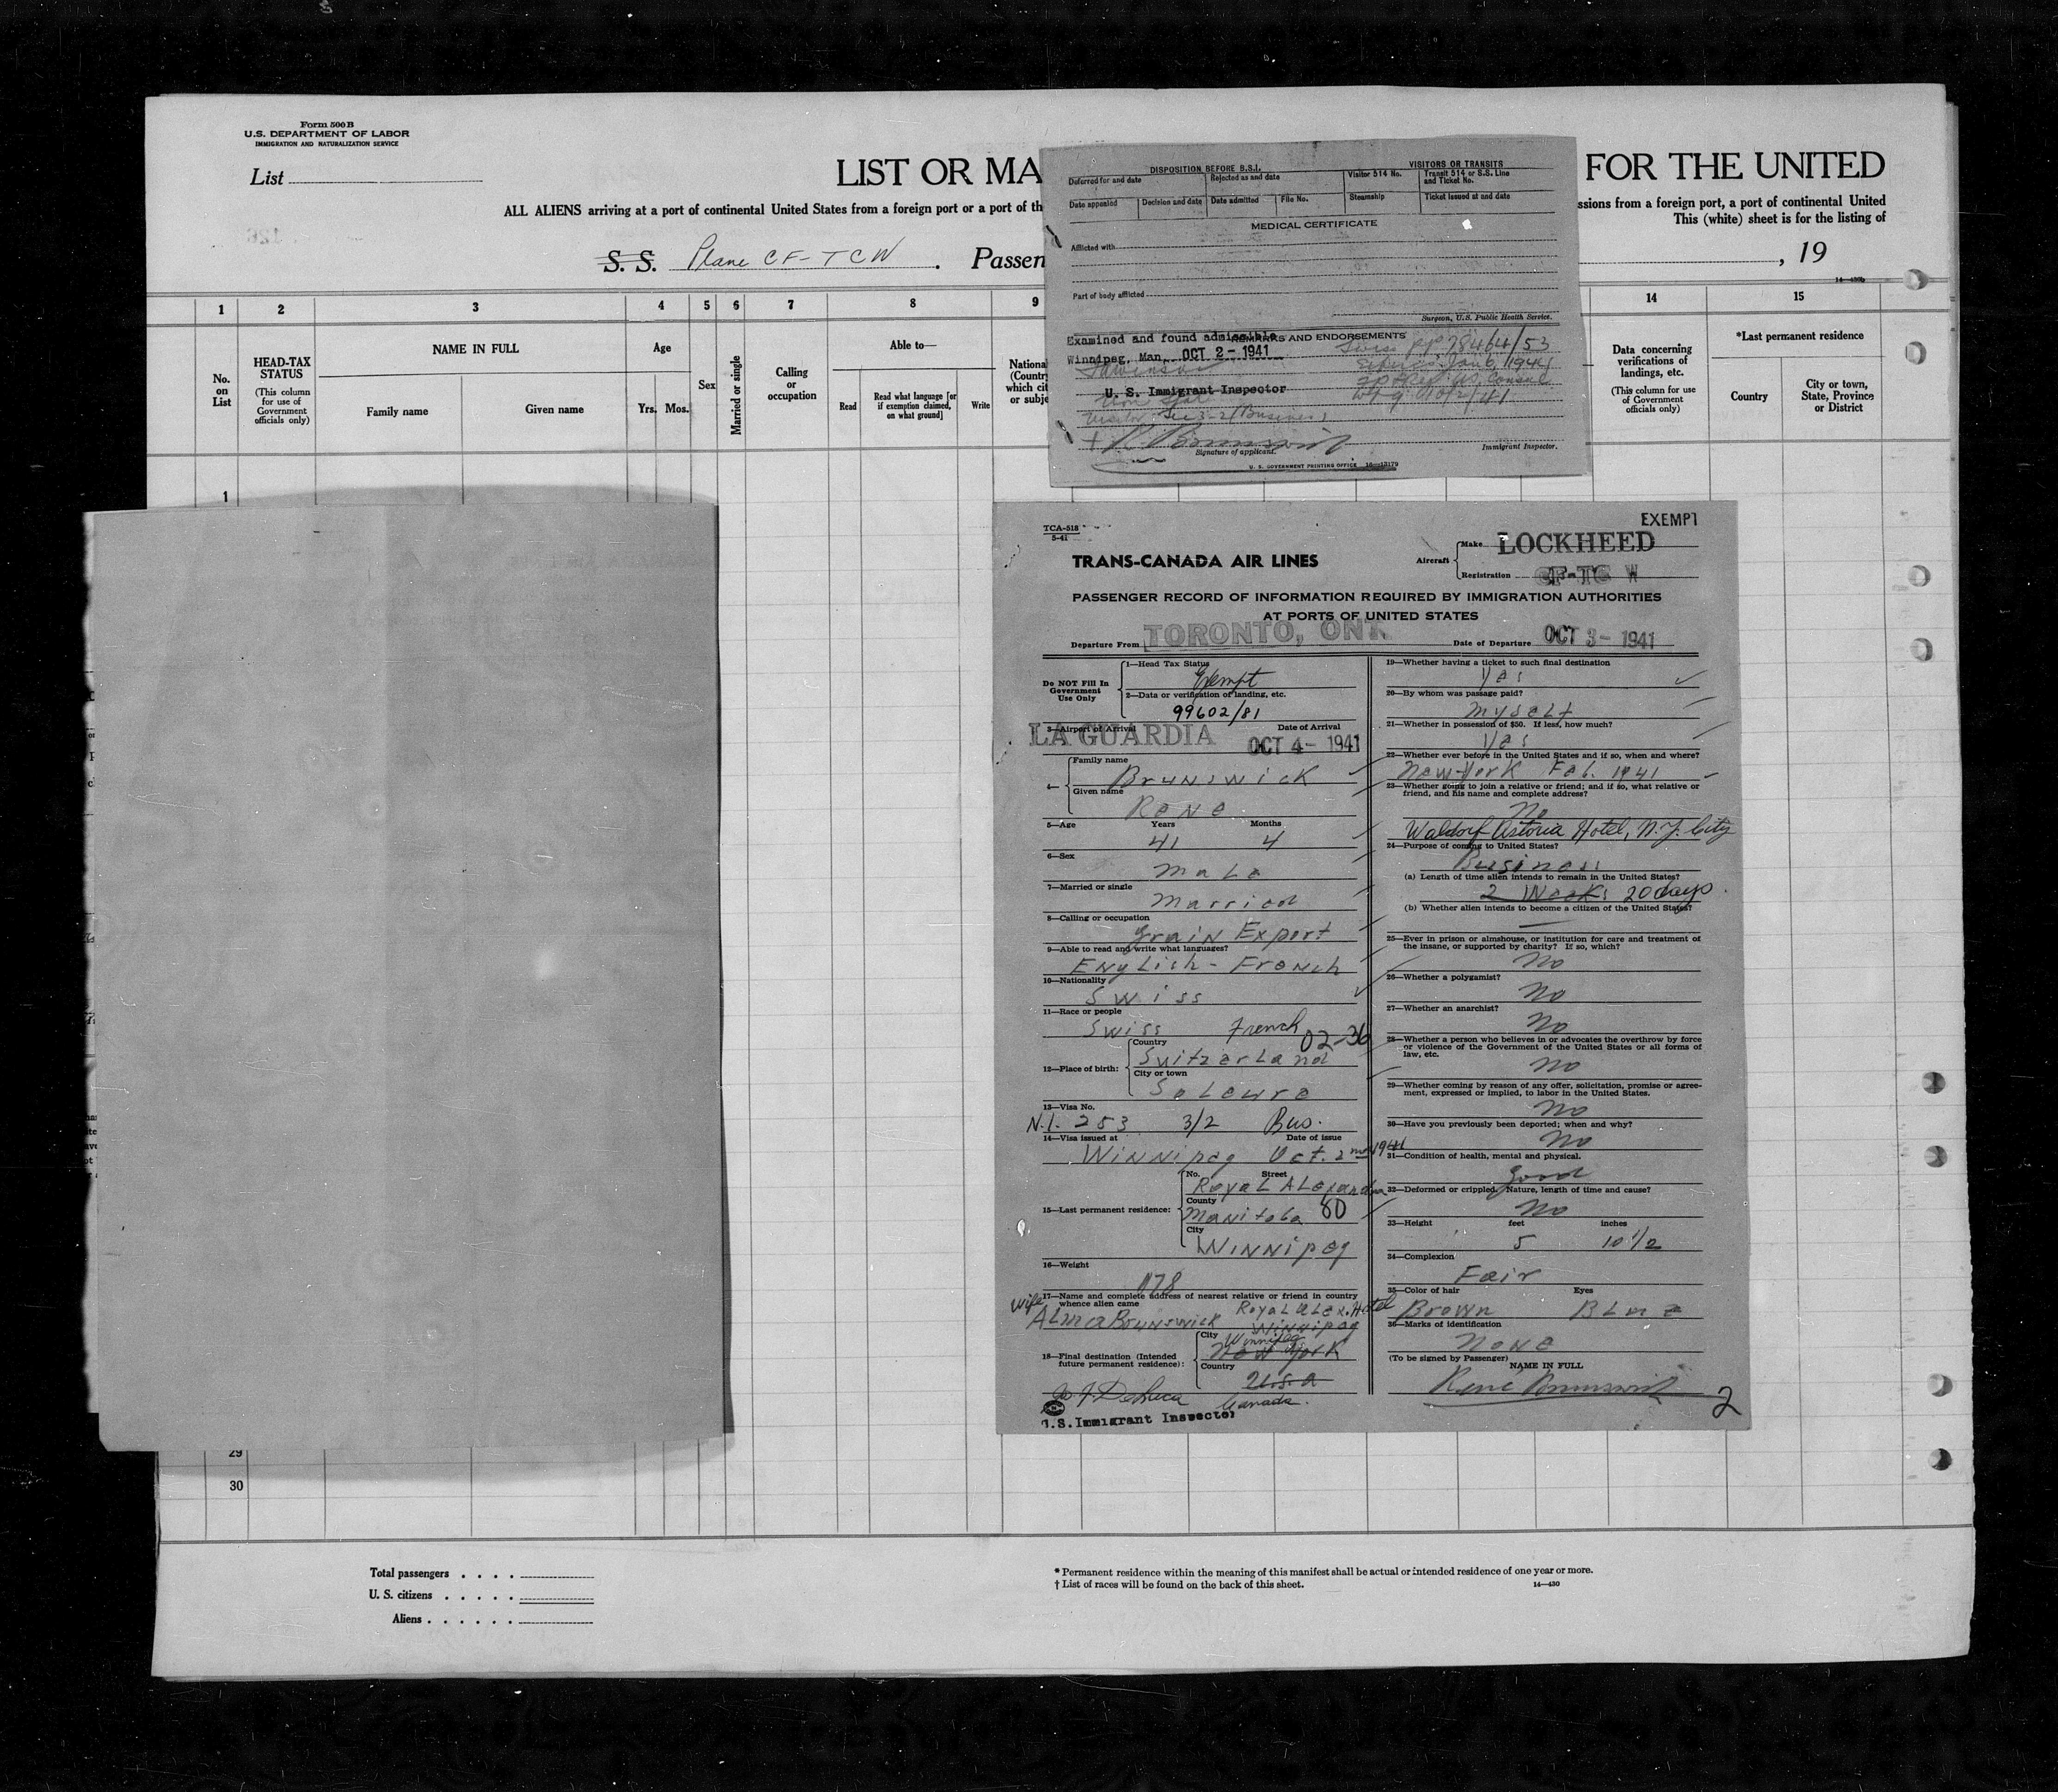 Form 500 B
U.S. DEPARTMENT OF LABOR
IMMIGRATION AND NATURALIZATION SERVICE
List
LIST OR MA
FOR THE UNITED
ALL ALIENS arriving at a port of continental United States from a foreign port or a port of th
ssions from a foreign port, a port of continental United
This (white) sheet is for the listing of
S. S. Plane CF-TCW . Passen
, 19
14—430b
1 2 3 4 5 6 7 8 9 14 15
No. on List
HEAD-TAX STATUS
(This column for use of Government officials only)
NAME IN FULL
Family name Given name
Age
Yrs. Mos.
Sex
Married or single
Calling or occupation
Able to—
Read
Read what language [or if exemption claimed, on what ground]
Write
National
(Country
which cit
or subje
Data concerning verifications of landings, etc.
(This column for use of Government officials only)
*Last permanent residence
Country
City or town, State, Province or District
1
29
30
DISPOSITION BEFORE B.S.I.
VISITORS OR TRANSITS
Deferred for and date Rejected as and date Visitor 514 No. Transit 514 or S.S. Line and Ticket No.
Date appealed Decision and date Date admitted File No. Steamship Ticket issued at and date
MEDICAL CERTIFICATE
Afflicted with
Part of body afflicted
Surgeon, U.S. Public Health Service.
Examined and found admissible
REMARKS AND ENDORSEMENTS
Winnipeg, Man. OCT 2 - 1941
Swiss PP 78464/53
Jan 6, 1941
U. S. Immigrant Inspector
Consul
Wpg 10/2/41
Visitor Sec 3-2 (Business)
R. Brunswick
Signature of applicant.
Immigrant Inspector.
U. S. GOVERNMENT PRINTING OFFICE 16—13179
EXEMPT
TCA-518
5-41
TRANS-CANADA AIR LINES
Aircraft
Make LOCKHEED
Registration CF-TC W
PASSENGER RECORD OF INFORMATION REQUIRED BY IMMIGRATION AUTHORITIES
AT PORTS OF UNITED STATES
Departure From TORONTO, ONT.
Date of Departure OCT 3 - 1941
Do NOT Fill In Government Use Only
1—Head Tax Status
Exempt
2—Data or verification of landing, etc.
99602/81
3—Airport of Arrival Date of Arrival
LA GUARDIA OCT 4 - 1941
4—
Family name
Brunswick
Given name
Rene
5—Age Years Months
41 4
6—Sex
Male
7—Married or single
Married
8—Calling or occupation
Grain Export
9—Able to read and write what languages?
English - French
10—Nationality
Swiss
11—Race or people
Swiss French
02-36
12—Place of birth:
Country
Switzerland
City or town
Soleure
13—Visa No.
N.I. 253 3/2 Bus.
14—Visa issued at Date of issue
Winnipeg Oct. 2nd 1941
15—Last permanent residence:
No. Street
Royal Alexandra
County
Manitoba 80
City
Winnipeg
16—Weight
178
17—Name and complete address of nearest relative or friend in country whence alien came
wife
Alma Brunswick Royal Alex. Hotel
Winnipeg
18—Final destination (Intended future permanent residence):
City
Winnipeg
New York
Country
U.S.A
Canada.
U.S. Immigrant Inspector
19—Whether having a ticket to such final destination
Yes
20—By whom was passage paid?
Myself
21—Whether in possession of $50. If less, how much?
Yes
22—Whether ever before in the United States and if so, when and where?
New-York Feb. 1941
23—Whether going to join a relative or friend; and if so, what relative or friend, and his name and complete address?
No
Waldorf Astoria Hotel, N.Y. City
24—Purpose of coming to United States?
Business
(a) Length of time alien intends to remain in the United States?
2 Weeks 20 days.
(b) Whether alien intends to become a citizen of the United States?
25—Ever in prison or almshouse, or institution for care and treatment of the insane, or supported by charity? If so, which?
No
26—Whether a polygamist?
No
27—Whether an anarchist?
No
28—Whether a person who believes in or advocates the overthrow by force or violence of the Government of the United States or all forms of law, etc.
No
29—Whether coming by reason of any offer, solicitation, promise or agreement, expressed or implied, to labor in the United States.
No
30—Have you previously been deported; when and why?
No
31—Condition of health, mental and physical.
Good
32—Deformed or crippled. Nature, length of time and cause?
No
33—Height feet inches
5 10 1/2
34—Complexion
Fair
35—Color of hair Eyes
Brown Blue
36—Marks of identification
None
(To be signed by Passenger)
NAME IN FULL
René Brunswick
2
Total passengers
U. S. citizens
Aliens
* Permanent residence within the meaning of this manifest shall be actual or intended residence of one year or more.
† List of races will be found on the back of this sheet.
14—430